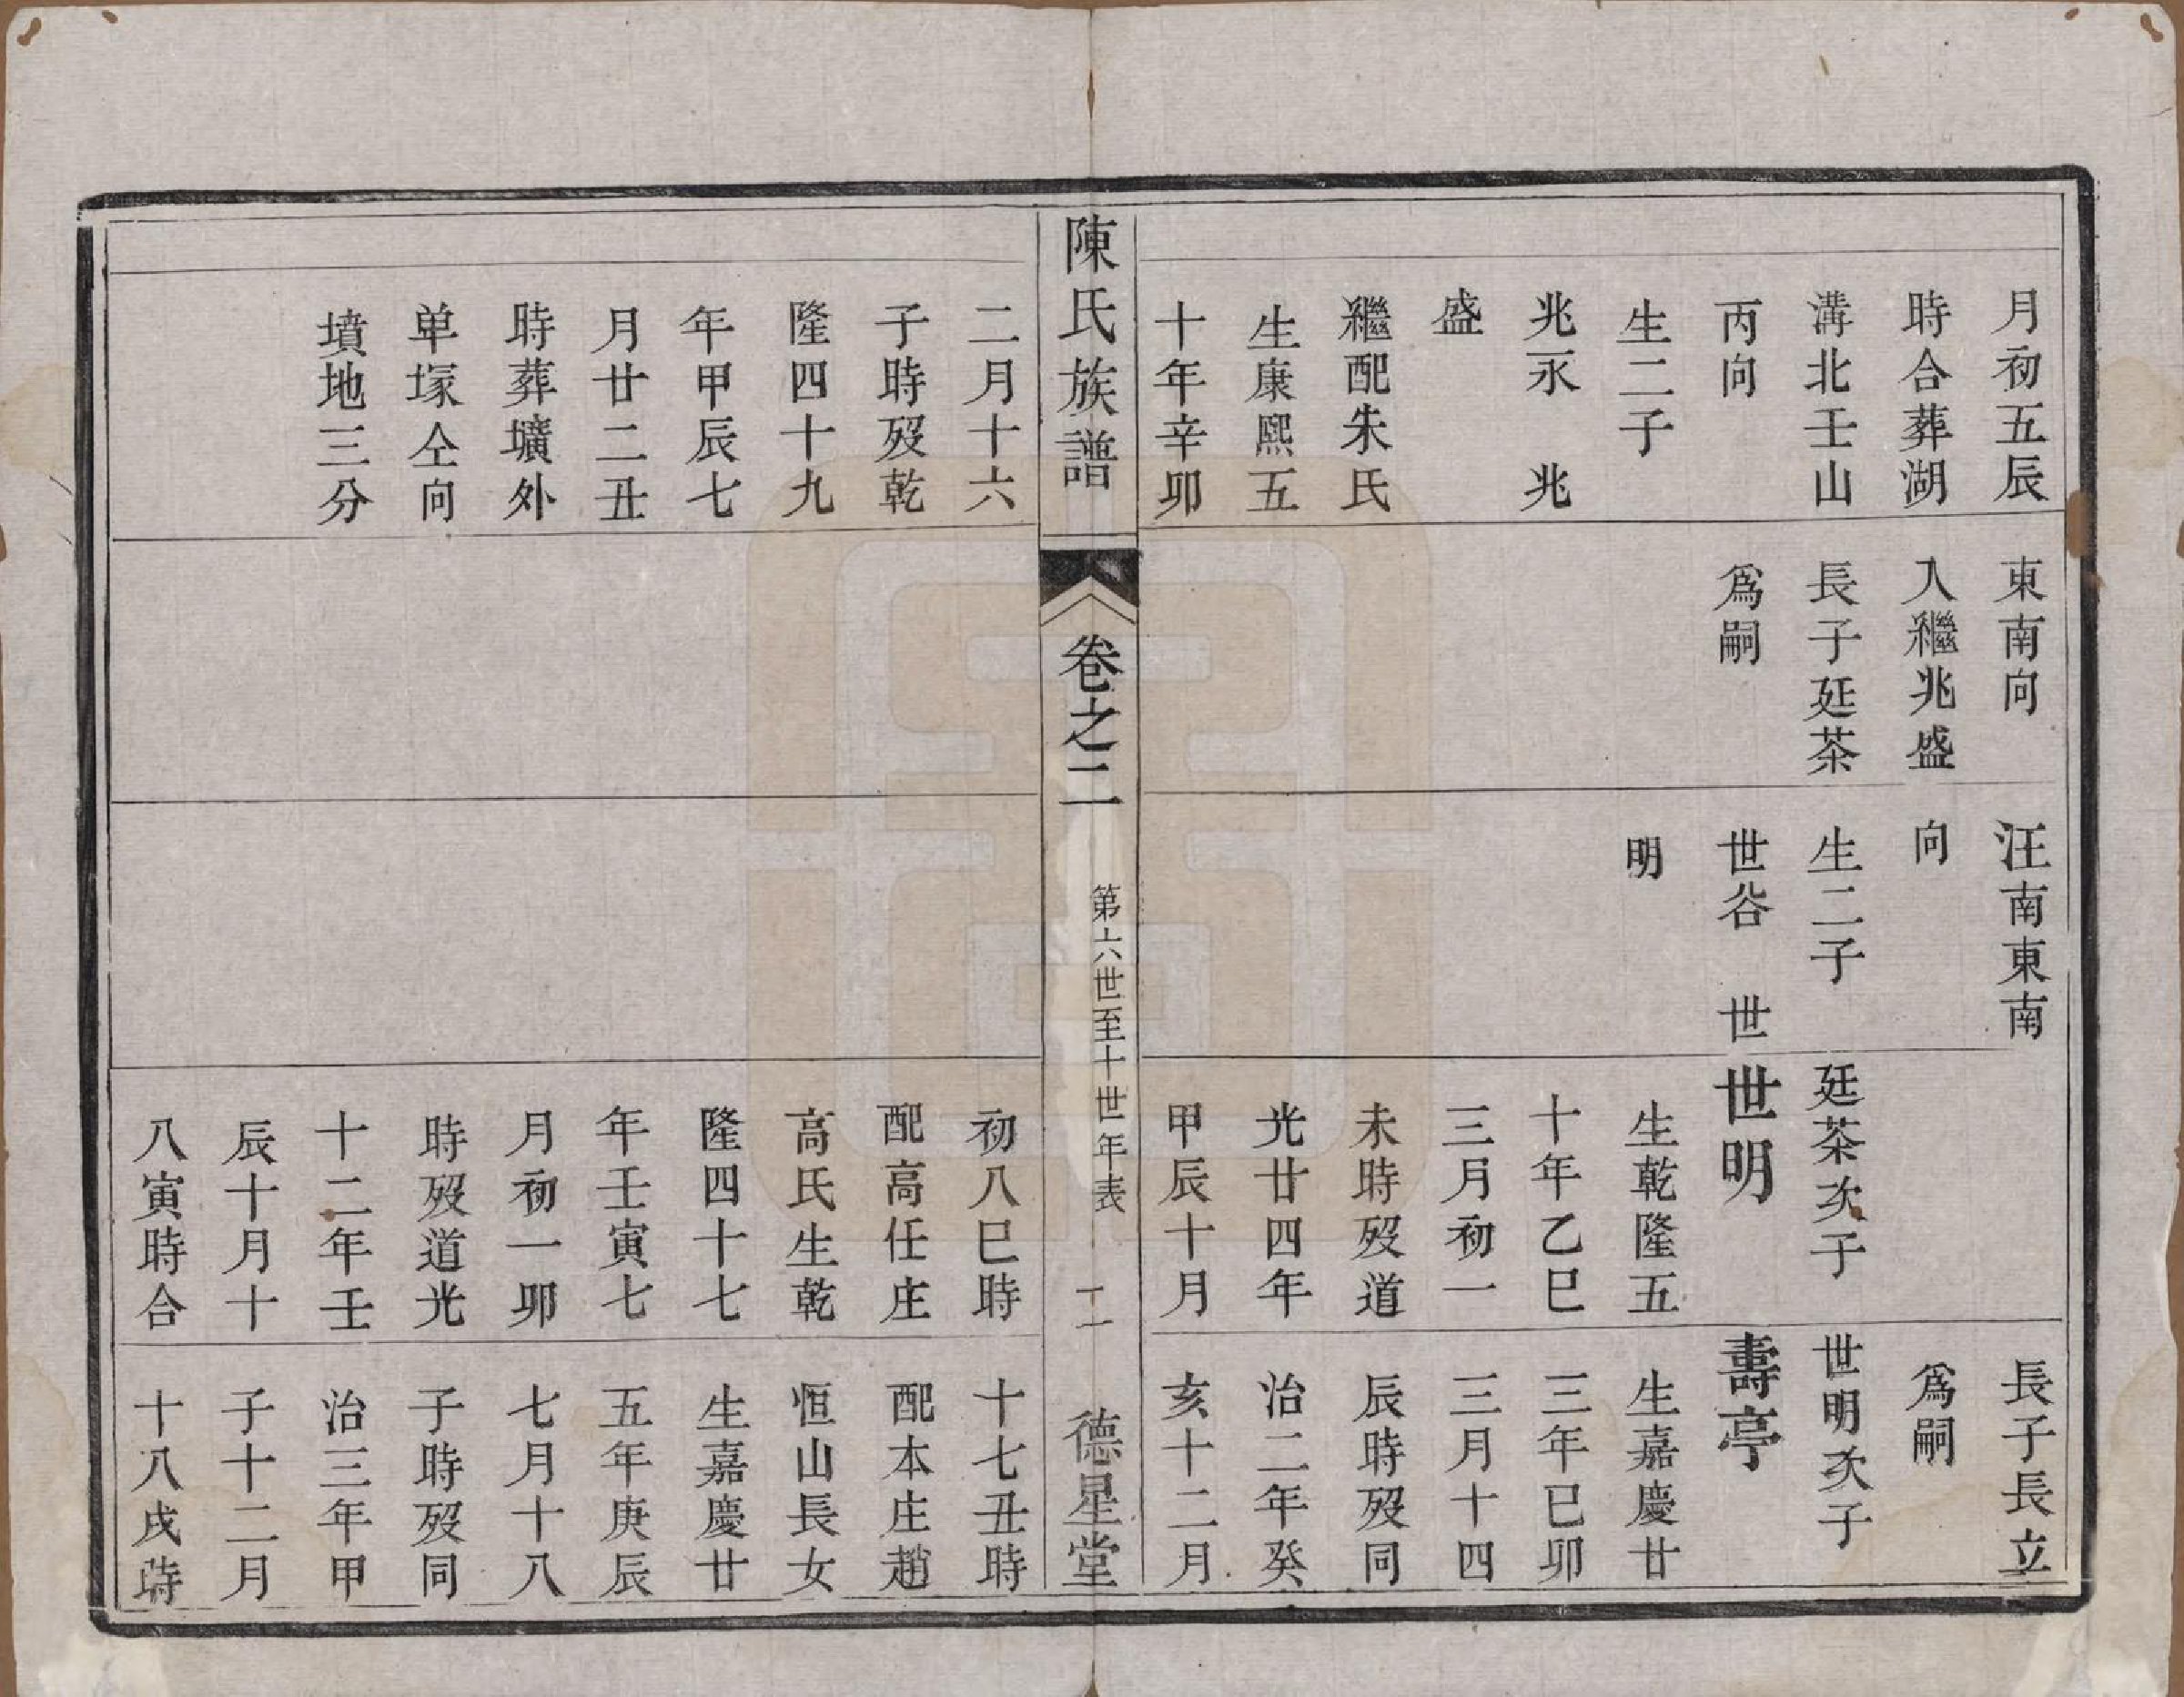 月初五辰
時合葬湖
溝北壬山
丙向
生二子
兆永　兆
盛
繼配朱氏
生康熙五
十年辛卯
東南向
入繼兆盛
長子廷茶
爲嗣
汪南東南
向
生二子
世谷　世
明
廷茶次子
世明
生乾隆五
十年乙巳
三月初一
未時歿道
光廿四年
甲辰十月
長子長立
爲嗣
世明次子
壽亭
生嘉慶廿
三年已卯
三月十四
辰時歿同
治二年癸
亥十二月
陳氏族譜
卷之二
第六世至十世年表
十一
德星堂
二月十六
子時歿乾
隆四十九
年甲辰七
月廿二丑
時葬壙外
单塚仝向
墳地三分
初八巳時
配高任庄
高氏生乾
隆四十七
年壬寅七
月初一卯
時歿道光
十二年壬
辰十月十
八寅時合
十七丑時
配本庄趙
恒山長女
生嘉慶廿
五年庚辰
七月十八
子時歿同
治三年甲
子十二月
十八戌時